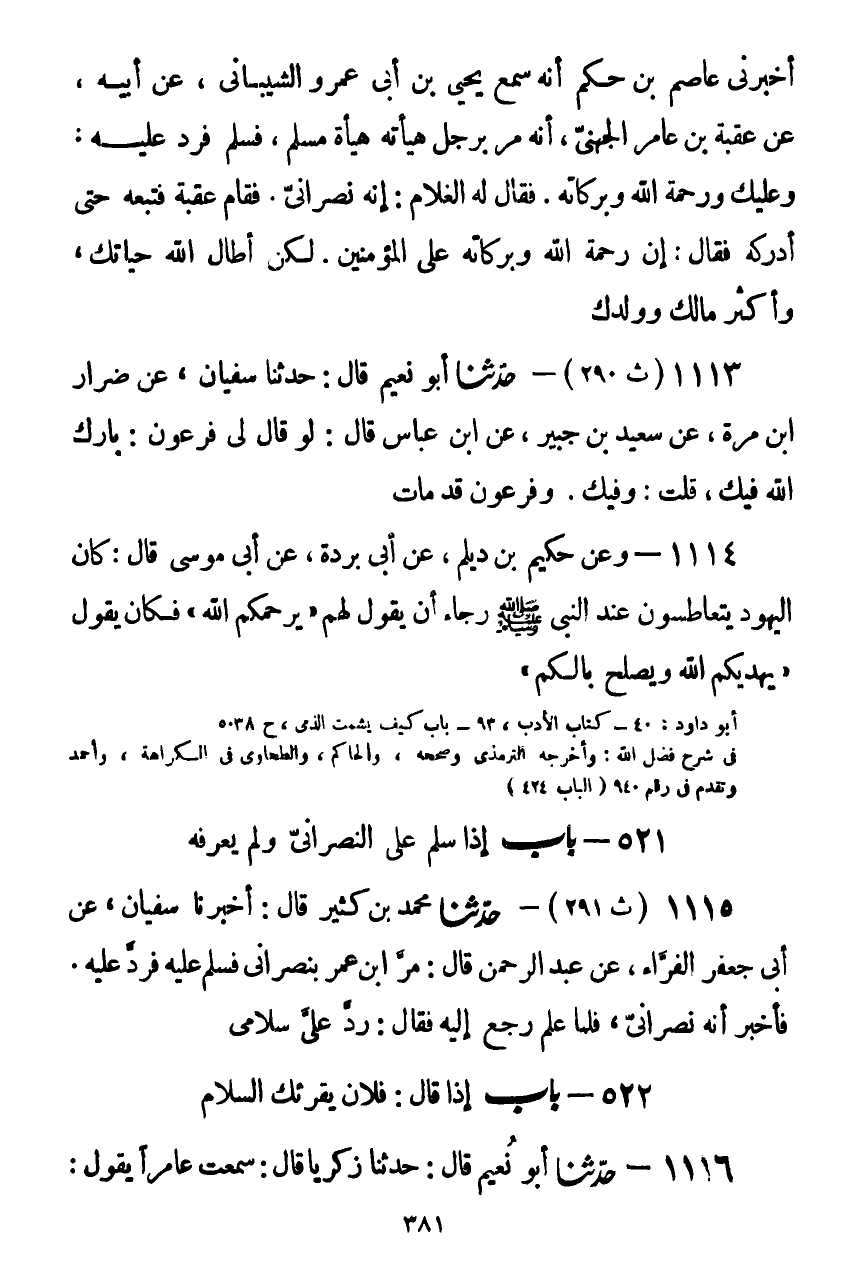 أخبرنى عاصم بن حكيم أنه سمع يحيى بن أبى عمرو الشيبانى ، عن أبيه ،
عن عقبة بن عامر الجهنىّ ، أنه مر برجل هيأته هيأة مسلم ، فسلم فرد عليه :
وعليك ورحمة الله وبركاته . فقال له الغلام : إنه نصرانىّ . فقام عقبة فتبعه حتى
أدركه فقال : إن رحمة الله وبركاته على المؤمنين . لكن أطال الله حياتك ،
وأكثر مالك وولدك
١١١٣ ( ث ٢٩٠ ) – حدّثنا أبو نعيم قال : حدثنا سفيان ، عن ضرار
ابن مرة ، عن سعيد بن جبير ، عن ابن عباس قال : لو قال لى فرعون : بارك
الله فيك ، قلت : وفيك . وفرعون قد مات
١١١٤ – وعن حكيم بن ديلم ، عن أبى بردة ، عن أبى موسى قال : كان
اليهود يتعاطسون عند النبى ﷺ رجاء أن يقول لهم « يرحمكم الله » فكان يقول
« يهديكم الله ويصلح بالكم »
أبو داود : ٤٠ – كتاب الأدب ، ٩٣ – باب كيف يشمت الذمى ، ح ٥٠٣٨
فى شرح فضل الله : وأخرجه الترمذى وصححه ، والحاكم ، والطحاوى فى الكراهة ، وأحمد
وتقدم فى رقم ٩٤٠ ( الباب ٤٢٤ )
٥٢١ – باب إذا سلم على النصرانىّ ولم يعرفه
١١١٥ ( ث ٢٩١ ) – حدّثنا محمد بن كثير قال : أخبرنا سفيان ، عن
أبى جعفر الفرَّاء ، عن عبد الرحمن قال : مرَّ ابن عمر بنصرانى فسلم عليه فردَّ عليه .
فأخبر أنه نصرانىّ ، فلما علم رجع إليه فقال : ردَّ علىَّ سلامى
٥٢٢ – باب إذا قال : فلان يقرئك السلام
١١١٦ – حدّثنا أبو نُعيم قال : حدثنا زكريا قال : سمعت عامراً يقول :
٣٨١